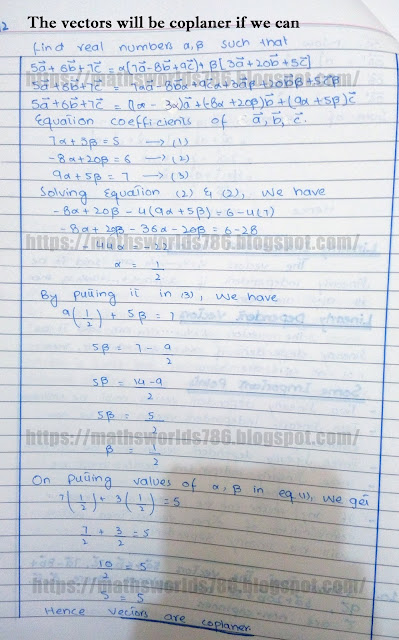 2 The vectors will be coplaner if we can
find real numbers α,β such that
5a⃗+6b⃗+7c⃗=α[7a⃗-8b⃗+9c⃗]+β[3a⃗+20b⃗+5c⃗]
5a⃗+6b⃗+7c⃗ = 7aα⃗-8b⃗α+9c⃗α+3a⃗β+20b⃗β+5c⃗β
5a⃗+6b⃗+7c⃗ = (7α-3α)a⃗+(-8α+20β)b⃗+(9α+5β)c⃗
Equation coefficients of a⃗, b⃗, c⃗.
7α+3β=5 → (1)
-8α+20β = 6 → (2)
9α+5β = 7 → (3)
Solving Equation (2) & (2), we have
-8α+20β-4(9α+5β)=6-4(7)
https://mathsworlds786.blogspot.com/
-8α+20β-36α-20β=6-28
-44α = -22
α = 1/2
By putting it in (3), we have
9(1/2) + 5β = 7
5β = 7 - 9/2
5β = 14-9/2
5β = 5/2
https://mathsworlds786.blogspot.com/
β = 1/2
On putting values of α, β in eq(1), we get
7(1/2)+3(1/2)=5
7/2 + 3/2 = 5
10/2 = 5
https://mathsworlds786.blogspot.com/
5 = 5
Hence vectors are coplaner